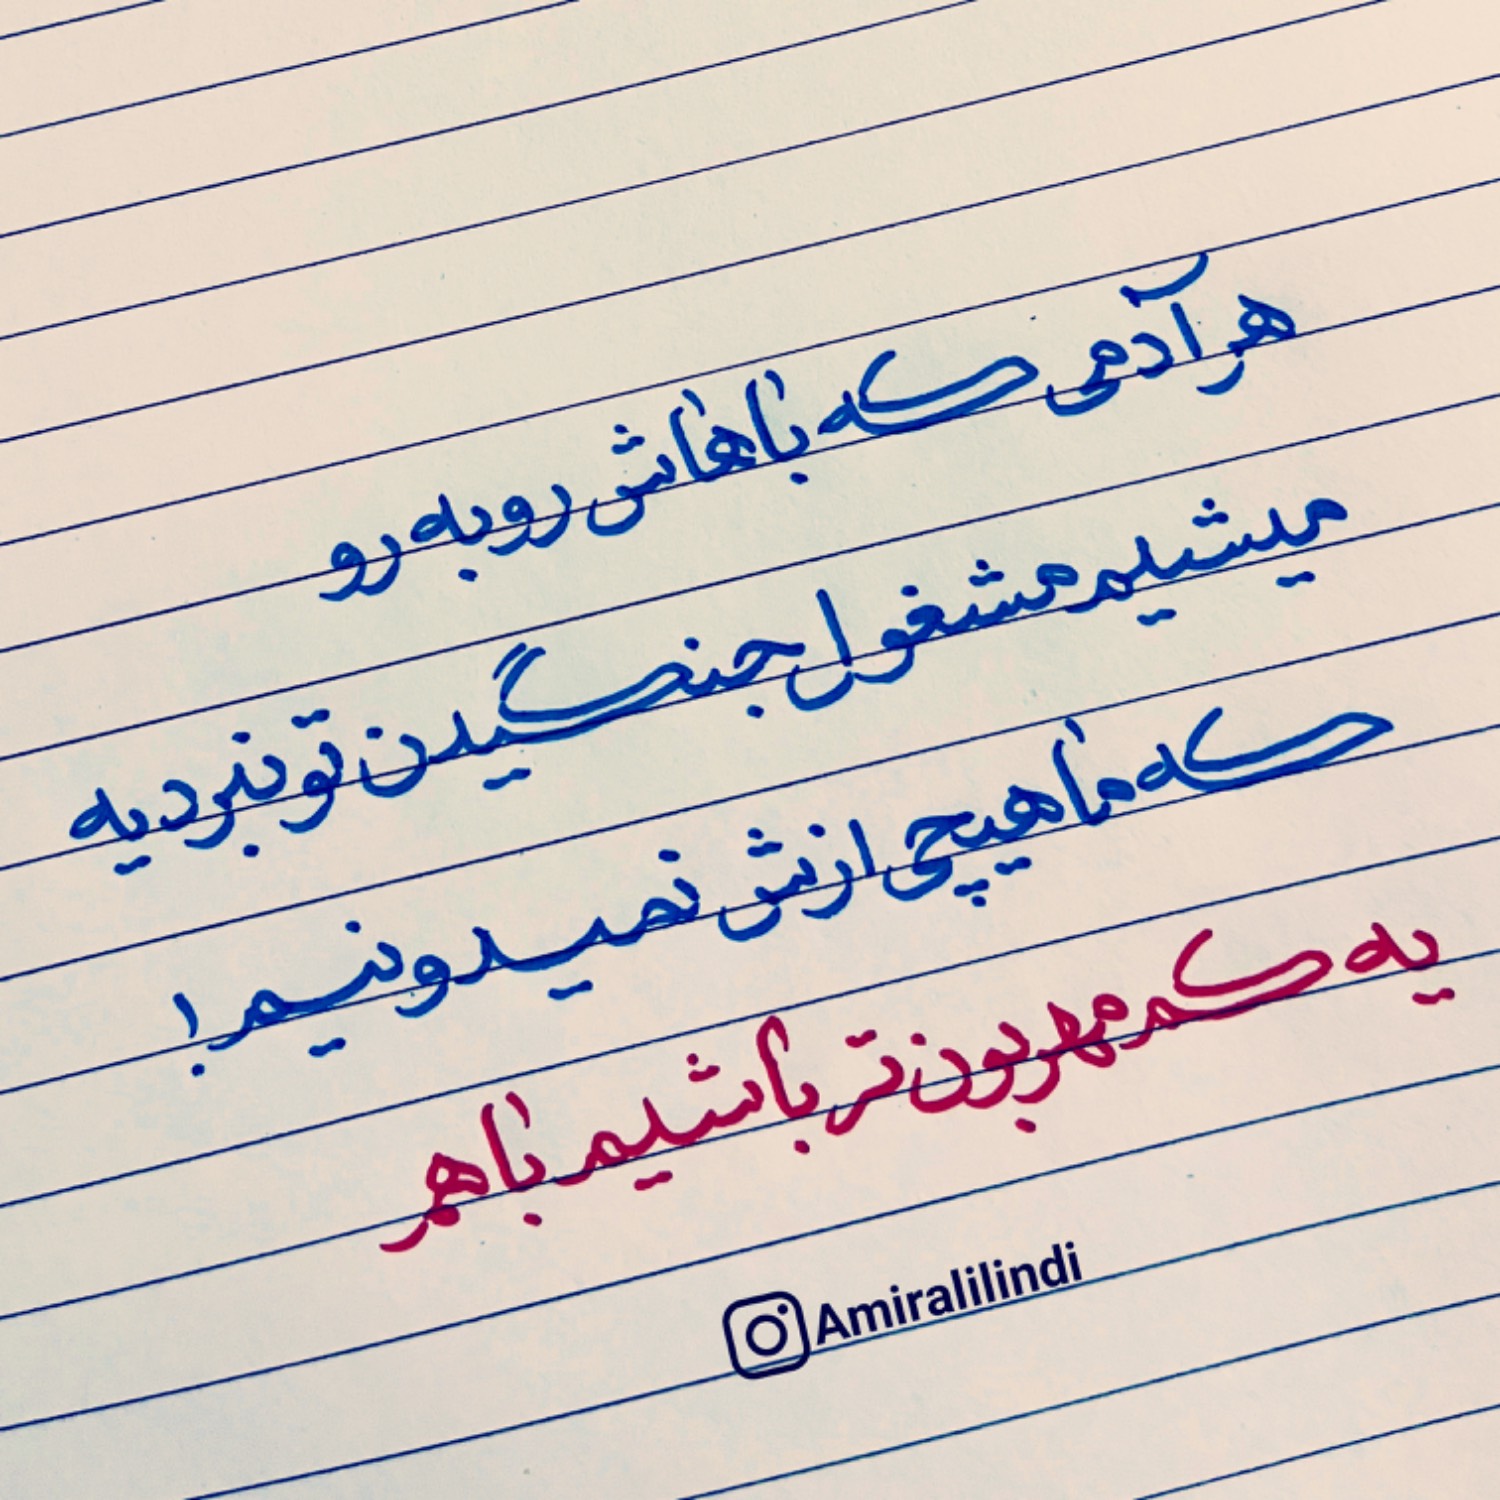 هر آدمی که باهاش رو به رو
میشیم مشغول جنگیدن تو نبردیه
که ما هیچی ازش نمیدونیم!
یه کم مهربون تر باشیم باهم
Amiralilindi